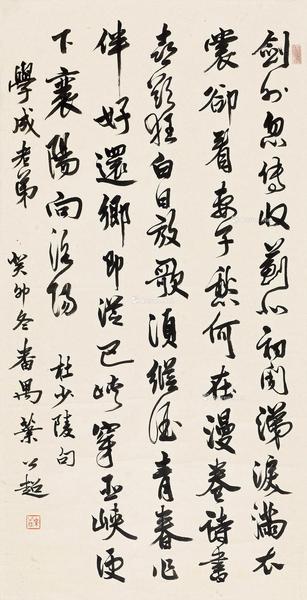 劍外忽傳收薊北初聞涕淚滿衣
裳卻看妻子愁何在漫卷詩書
喜欲狂白日放歌須縱酒青春作
伴好還鄉即從巴峽穿巫峽便
下襄陽向洛陽 杜少陵句
學成老弟 癸卯冬番禺葉公超